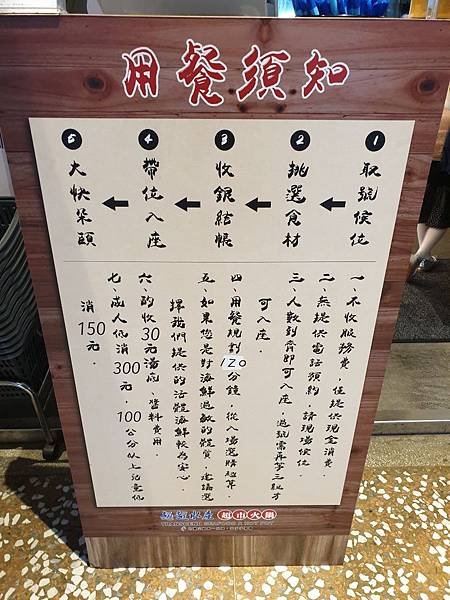 用餐須知
1 取號候位
2 挑選食材
3 收銀結帳
4 帶位入座
5 大快朵頤
一、不收服務費，僅提供現金消費。
二、無提供電話預約，請現場候位。
三、人數到齊即可入座，過號需再等三組才
可入座。
四、用餐規劃120分鐘，從入場選購起算。
五、如果您是對海鮮過敏的體質，建議選
擇我們提供的活體海鮮較為安心
六、酌收30元湯底、醬料費用。
七、成人低消300元，100公分以上兒童低
消150元。
水產
超市火鍋